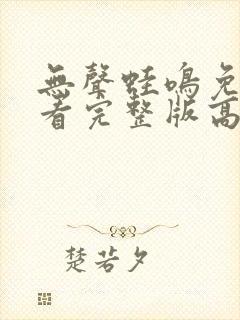 無聲蛙鳴免
看完整版高
楚若夕